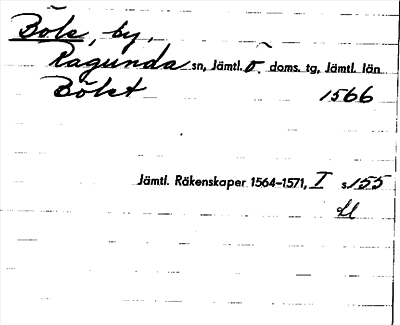 Böle, by,
Ragunda sn, Jämtl. ö. doms. tg, Jämtl. län
Bölet 1566
Jämtl. Räkenskaper 1564-1571, I s. 155